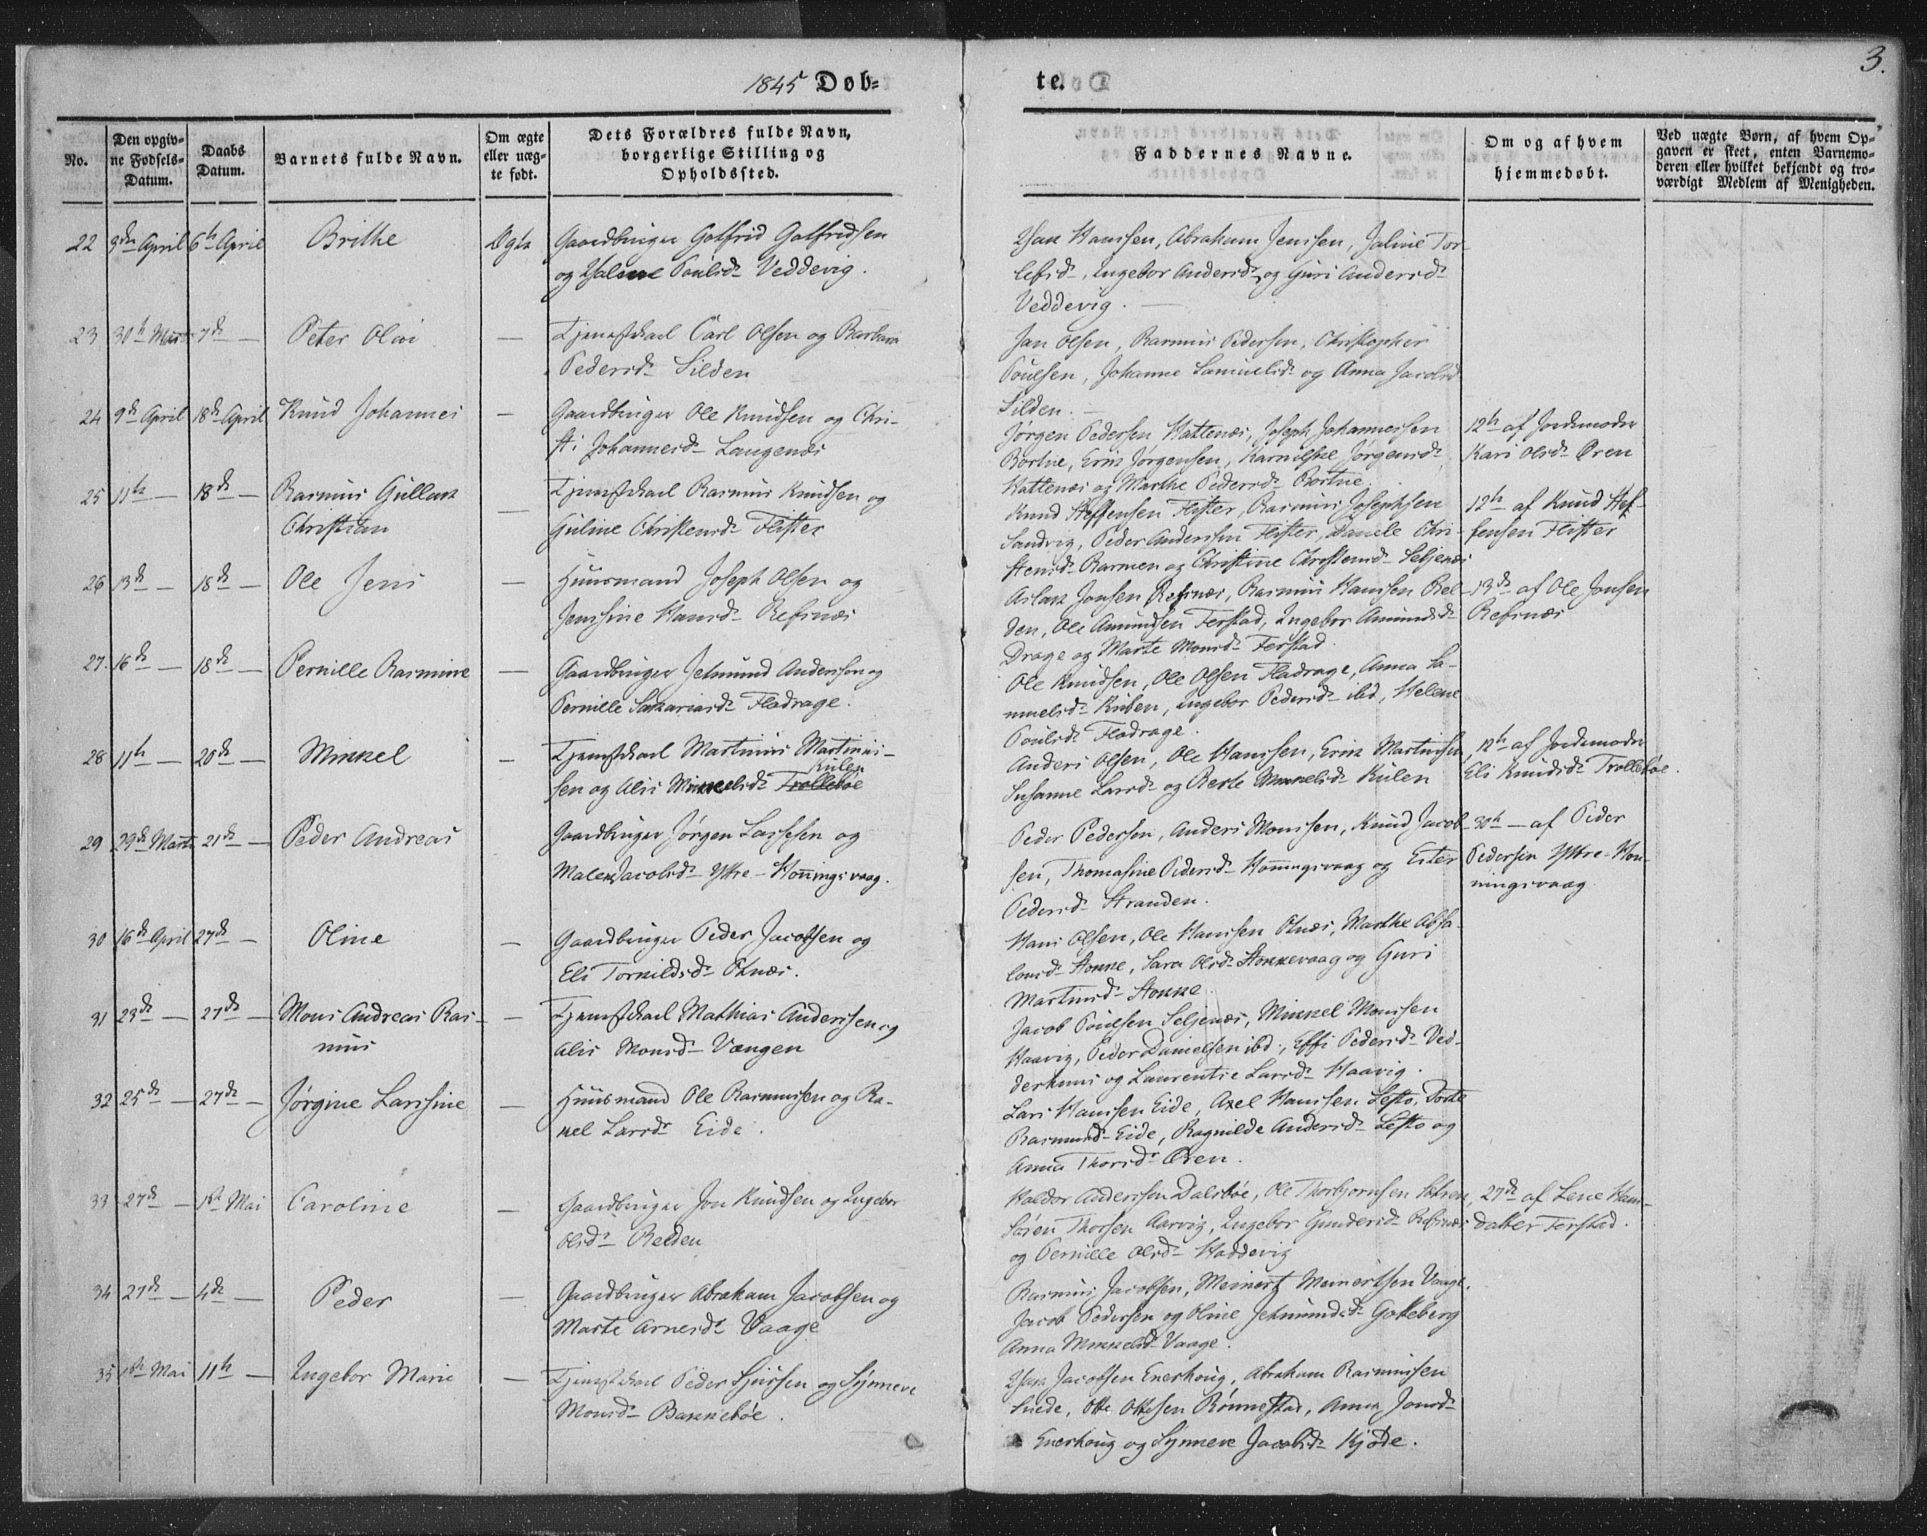 1845 Døb-
te.
3.
No.
Den opgiv-
ne Fødsels-
Datum.
Daabs
Datum.
Barnets fulde Navn.
Om ægte
eller uæg-
te født.
Dets Forældres fulde Navn,
borgerlige Stilling og
Opholdssted.
Faddernes Navne.
Om og af hvem
hjemmedøbt.
Ved uægte Børn, af hvem Op-
gaven er skeet, enten Barnemo-
deren eller hvilket bekjendt og tro-
værdigt Medlem af Menigheden.
22 3de April 6te April Brithe Ægte Gaardbruger Gotfrid Gotfridsen
og Poulsd. Veddevig.
Isak Hanssen, Abraham Jenssen, Jaline Tor-
lefsd., Ingebor Andersd. og Guri Andersd.
Veddevig.
23 30te Marts 7de — Peter Olai — Tjenestekarl Carl Olsen og Barbara
Pedersd. Silden
Jan Olsen, Rasmus Pedersen, Christopher
Poulsen, Johanne Samuelsd. og Anna Jacobsd.
Silden.
24 9de April 18de April Knud Johannes — Gaardbruger Ole Knudsen og Chri-
sti Johannesd. Langenæs
Jørgen Pedersen Hattenæs, Joseph Johannessen
Bortne, Erik Jørgensen, Karnilske Jørgensd.
Hattenæs og Marthe Pedersd. Bortne.
12te af Jordemoder
Kari Olsd. Øren
25 11te — 18de — Rasmus Gullak
Christian
— Tjenestekarl Rasmus Knudsen og
Guline Christensd. Flister
Knud Steffensen Flister, Rasmus Josephsen
Sandvig, Peder Andersen Flister, Danele Chri-
stensd. Barmen og Christine Christensd. Seljenæs
12te af Knud Stef-
fensen Flister
26 13de — 18de — Ole Jens — Huusmand Joseph Olsen og
Jenssine Hansd. Refsnæs
Aslak Jonsen Refsnæs, Rasmus Hanssen Rel-
den, Ole Amundsen Ferstad, Ingebor Amundsd.
Drage og Marte Monsd. Ferstad.
13de af Ole Jonsen
Refsnæs
27. 16de — 18de — Pernille Rasmine — Gaardbruger Jetmund Anderssen og
Pernille Sakariasd. Fladrage.
Ole Knudsen, Ole Olsen Fladrage, Anna Sa-
muelsd. Kulen, Ingebor Pedersd. ibd, Helene
Poulsd. Fladrage.
28 11te — 20de — Mikkel — Tjenestekarl Martinus Martinus-
Kulen
sen og Alis Mikkelsd. Trollebøe
Anders Olsen, Ole Hanssen, Erik Martinsen,
Susanne Larsd. og Berte Mikkelsd. Kulen
12te af Jordemoder
Eli Knudsd. Trollebøe.
29 29de Marts 21de — Peder Andreas Gaardbruger Jørgen Lassesen og
Malene Jacobsd. Yttre-Honningsvaag.
Peder Pedersen, Anders Monssen, Knud Jacob-
sen, Thomasine Pedersd. Honningsvaag og Ester
Pedersd. Stranden.
30te — af Peder
Pedersen Yttre-Hon-
ningsvaag
30 16de April 27de — Oline — Gaardbruger Peder Jacobsen og
Eli Torkildsd. Otnæs.
Hans Olsen, Ole Hanssen Otnæs, Marthe Absa-
lonsd. Stokke, Sara Olsd. Stokkevaag og Guri
Martinsd. Stokke.
31 23de — 27de — Mons Andreas Ras-
mus
— Tjenestekarl Mathias Anderssen og
Alis Monsd. Vængen
Jacob Poulsen Seljenæs, Mikkel Monssen
Haavig, Peder Danielsen ibd., Effi Pedersd. Ved-
derhuus og Laurentse Larsd. Haavig.
32 25de — 27de — Jørgine Larssine — Huusmand Ole Rasmussen og Ra-
kel Larsd. Eide.
Lars Hanssen Eide, Axel Hanssen Lesto, Dorte
Rasmusd. Eide, Ragnilde Andersd. Lesto og
Anna Thorsd. Øren.
33 27de — 1ste Mai Caroline — Gaardbruger Jon Knudsen og Ingebor
Olsd. Relden
Haldor Anderssen Dalsbøe, Ole Thorbjørnsen
Søren Thorsen Aarvig, Ingebor Gundersd. Refsnæs
og Pernille Olsd. Hoddevig
27de af Lene Hans-
datter Ferstad.
34 27de — 4de — Peder — Gaardbruger Abraham Jacobsen og
Marte Arnesd. Vaage
Rasmus Jacobsen, Meinert Meinertsen Vaage,
Jacob Pedersen og Oline Jetmundsd. Gotteberg
Anna Mikkelsd. Vaage.
35 1ste Mai 11te — Ingebor Marie — Tjenestekarl Peder Sjursen og Synneve
Monsd. Bakkebøe.
Isak Jacobsen Enerhoug, Abraham Rasmussen
Otte Ottesen Rønnestad, Anna Jonsd.
Enerhoug og Synneve Jacobsd. Kjøde.